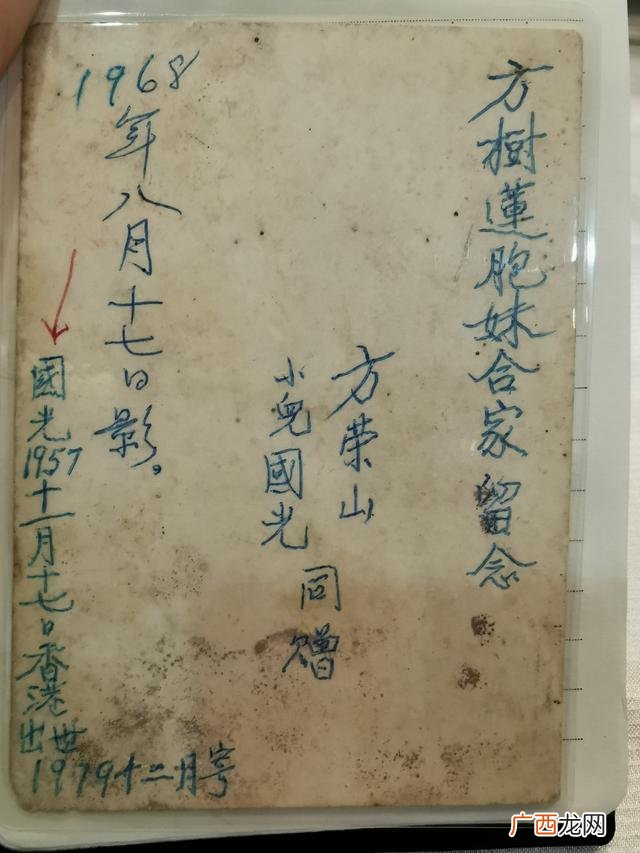 方樹蓮胞妹合家留念
方荣山
小兒國光
同贈
1968年八月十七日影。
國光1957十一月十七日香港出世
1979十二月寄
广西龙网